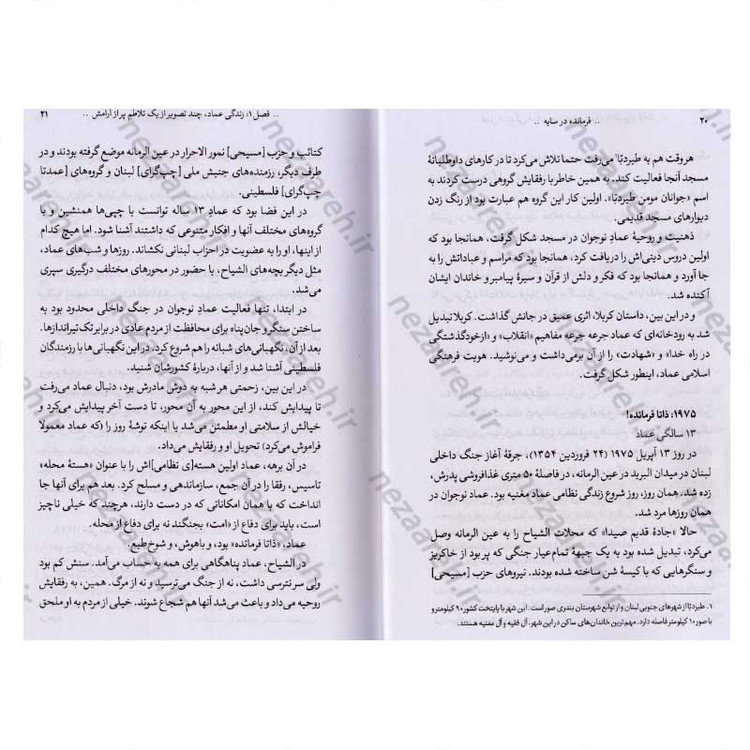 ۲۰
.. فرمانده در سایه ..
هر وقت هم به طیردبّا۱ می‌رفت حتما تلاش می‌کرد تا در کارهای داوطلبانهٔ
مسجد آنجا فعالیت کند. به همین خاطر با رفقایش گروهی درست کردند به
اسم «جوانان مومن طیردبّا». اولین کار این گروه هم عبارت بود از رنگ زدن
دیوارهای مسجد قدیمی.
ذهنیت و روحیهٔ عماد نوجوان در مسجد شکل گرفت. همانجا بود که
اولین دروس دینی‌اش را دریافت کرد، همانجا بود که مراسم و عباداتش را به
جا آورد و همانجا بود که فکر و دلش از قرآن و سیرهٔ پیامبر و خاندان ایشان
آکنده شد.
و در این بین، داستان کربلا، اثری عمیق در جانش گذاشت. کربلا تبدیل
شد به رودخانه‌ای که عماد جرعه جرعه مفاهیم «انقلاب» و «ازخودگذشتگی
در راه خدا» و «شهادت» را از آن برمی‌داشت و می‌نوشید. هویت فرهنگی
اسلامی عماد، اینطور شکل گرفت.
۱۹۷۵: ذاتا فرمانده!
۱۳ سالگی عماد
در روز ۱۳ آپریل ۱۹۷۵ (۲۴ فروردین ۱۳۵۴)، جرقهٔ آغاز جنگ داخلی
لبنان در میدان البرید در عین الرمانه، در فاصلهٔ ۵۰ متری غذافروشی پدرش،
زده شد. همان روز، روز شروع زندگی نظامی عماد مغنیه بود. عماد نوجوان در
همان روزها مرد شد.
حالا «جادهٔ قدیم صیدا» که محلات الشیاح را به عین الرمانه وصل
می‌کرد، تبدیل شده بود به یک جبههٔ تمام‌عیار جنگی که پر بود از خاکریز
و سنگرهایی که با کیسهٔ شن ساخته شده بودند. نیروهای حزب [مسیحی]
۱. طیردبّا از شهرهای جنوبی لبنان و از توابع شهرستان بندری صور است. این شهر با پایتخت کشور ۹۰ کیلومتر و
با صور ۱۰ کیلومتر فاصله دارد. مهم‌ترین خاندان‌های ساکن در این شهر، آل فقیه و آل مغنیه هستند.
.. فصل ۱: زندگی عماد، چند تصویر از یک تلاطم پر از آرامش ..
۲۱
کتائب و حزب [مسیحی] نمور الاحرار در عین الرمانه موضع گرفته بودند و در
طرف دیگر، رزمنده‌های جنبش ملی [چپ‌گرای] لبنان و گروه‌های [عمدتا
چپ‌گرای] فلسطینی.
در این فضا بود که عماد ۱۳ ساله توانست با چپی‌ها همنشین و با
گروه‌های مختلف آنها و افکار متنوعی که داشتند آشنا شود. اما هیچ کدام
از اینها، او را به عضویت در احزاب لبنانی نکشاند. روزها و شب‌های عماد،
مثل دیگر بچه‌های الشیاح، با حضور در محورهای مختلف درگیری سپری
می‌شد.
در ابتدا، تنها فعالیت عماد نوجوان در جنگ داخلی محدود بود به
ساختن سنگر و جان‌پناه برای محافظت از مردم عادی در برابر تک‌تیراندازها.
بعد از آن، نگهبانی‌های شبانه را هم شروع کرد. در این نگهبانی‌ها با رزمندگان
فلسطینی آشنا شد و از آنها، دربارهٔ کشورشان شنید.
در این بین، زحمتی هر شبه به دوش مادرش بود، دنبال عماد می‌رفت
تا پیدایش کند، از این محور به آن محور، تا دست آخر پیدایش می‌کرد و
خیالش از سلامتی او مطمئن می‌شد یا اینکه توشهٔ روز را (که عماد معمولا
فراموش می‌کرد) تحویل او و رفقایش می‌داد.
در آن برهه، عماد اولین هسته[ی نظامی]‌اش را با عنوان «هستهٔ محله»
تاسیس، رفقا را در آن جمع، سازماندهی و مسلح کرد. بعد هم برای آنها جا
انداخت که با همان امکاناتی که در دست دارند، هرچند که خیلی ناچیز
است، باید برای دفاع از «امت» بجنگند نه برای دفاع از محله.
عماد، «ذاتا فرمانده» بود، و باهوش، و شوخ‌طبع.
در الشیاح، عماد پناهگاهی برای همه به حساب می‌آمد. سنش کم بود
ولی سر نترسی داشت، نه از جنگ می‌ترسید و نه از مرگ. همین، به رفقایش
روحیه می‌داد و باعث می‌شد آنها هم شجاع شوند. خیلی از مردم به او ملحق
nezaareh.ir